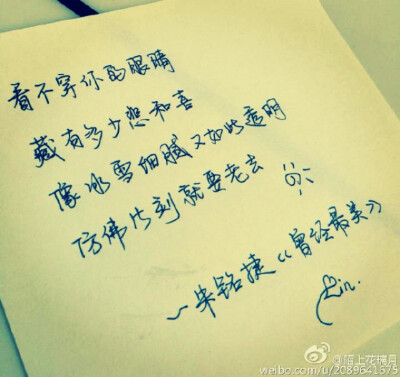 看不穿你的眼睛
藏有多少悲和喜
像冰雪细腻又如此透明
仿佛片刻就要老去
—朱铭捷《曾经最美》
Lin.
@陌上花撲月
weibo.com/u/2089641375